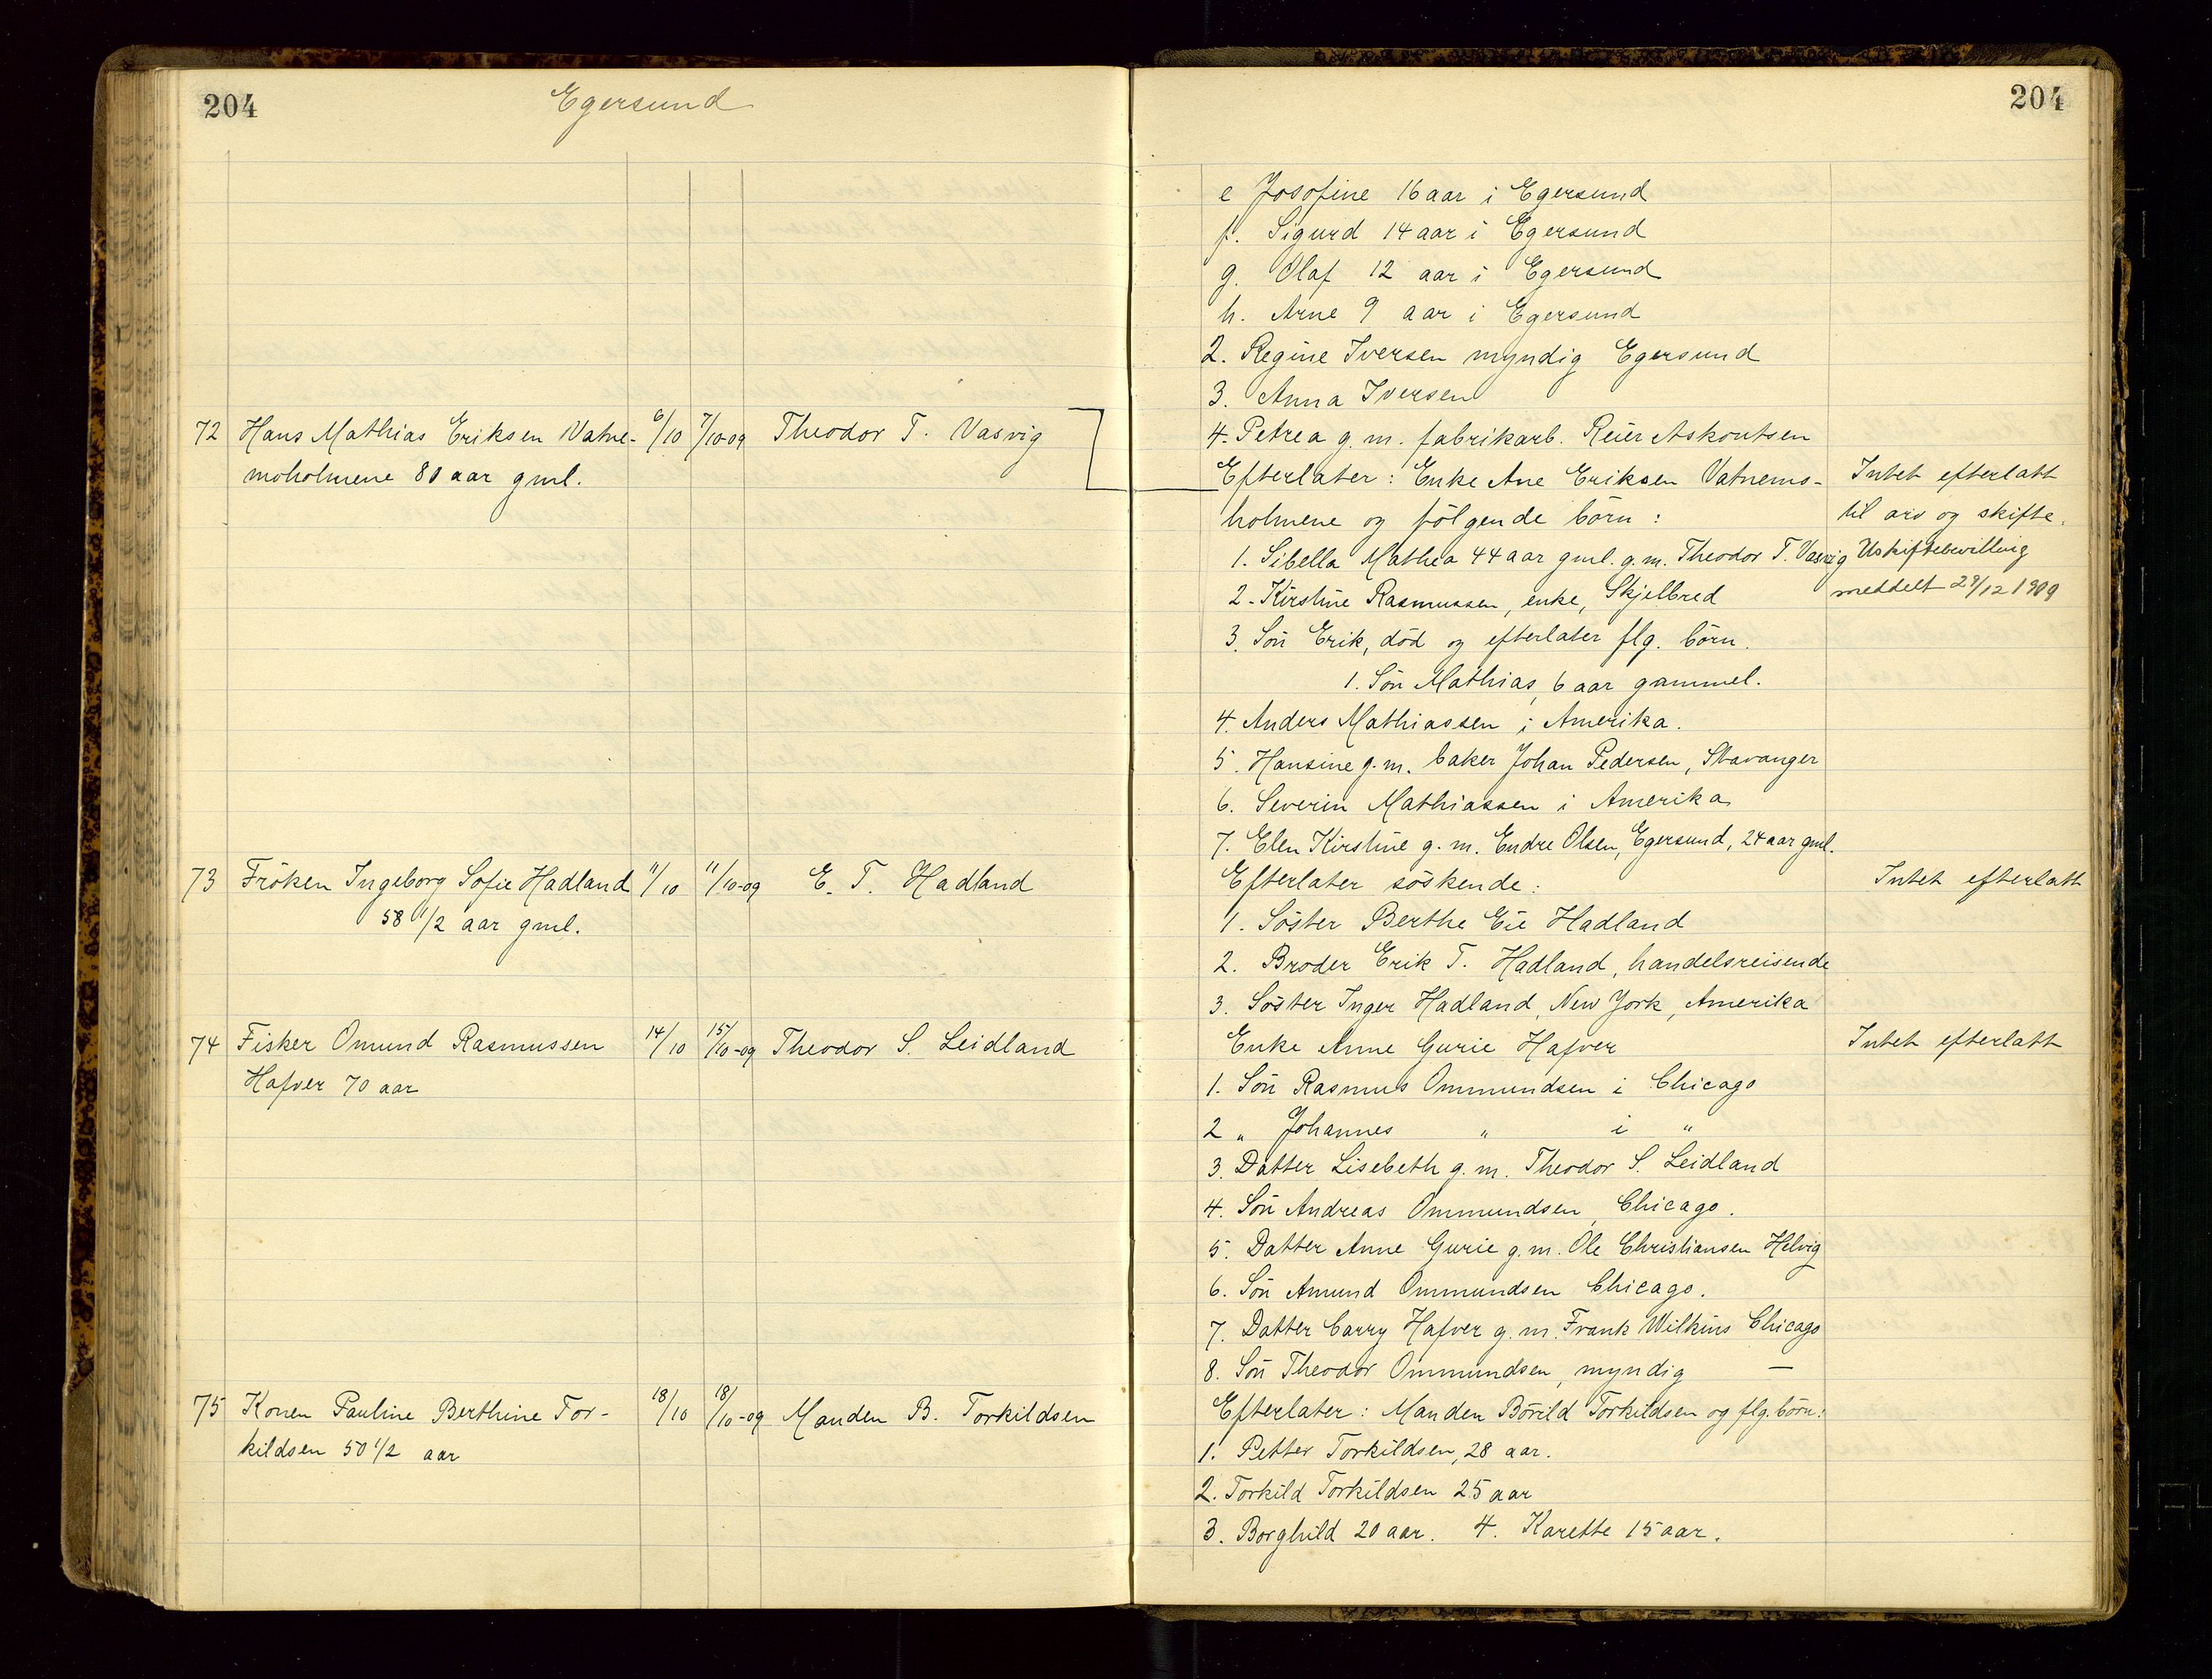 204
Egersund
72 Hans Mathias Eriksen Vatne- 6/10 7/10-09 Theodor T. Vasvig
moholmene 80 aar gml.
73 Fröken Ingeborg Sofie Hadland 11/10 11/10-09 E. T. Hadland
58 1/2 aar gml.
74 Fisker Omund Rasmussen 14/10 15/10-09 Theodor S. Leidland
Hafver 70 aar
75 Konen Pauline Berthine Tor- 18/10 18/10-09 Manden B. Torkildsen
kildsen 50 1/2 aar
204
e Josofine 16 aar i Egersund
f. Sigurd 14 aar i Egersund
g. Olaf 12 aar i Egersund
h. Arne 9 aar i Egersund
2. Regine Iversen myndig Egersund
3. Anna Iversen
4. Petrea g.m. fabrikarb. Reier Askoutsen
Efterlater: Enke Ane Eriksen Vatnemo- Intet efterlatt
holmene og fölgende börn: til arv og skifte.
1. Sibella Mathea 44 aar gml. g.m. Theodor T. Vasvig Uskiftebevilling
2. Kirstine Rasmussen, enke, Skjelbred meddelt 29/12 1909
3. Sön Erik, död og efterlater flg. börn.
1. Sön Mathias, 6 aar gammel.
4. Anders Mathiassen i Amerika.
5. Hansine g.m. baker Johan Pedersen, Stavanger
6. Severin Mathiassen i Amerika
7. Elen Kirstine g.m. Endre Olsen, Egersund, 24 aar gml.
Efterlater söskende: Intet efterlatt
1. Söster Berthe Eie Hadland
2. Broder Erik T. Hadland, handelsreisende
3. Söster Inger Hadland, New York, Amerika
Enke Anne Gurie Hafver Intet efterlatt
1. Sön Rasmus Ommundsen i Chicago
2 " Johannes " i "
3. Datter Lisebeth g.m. Theodor S. Leidland
4. Sön Andreas Ommundsen, Chicago.
5. Datter Anne Gurie g.m. Ole Christiansen Helvig
6. Sön Amund Ommundsen Chicago.
7. Datter Carry Hafver g.m. Frank Wilkins Chicago
8. Sön Theodor Ommundsen, myndig —
Efterlater: Manden Börild Torkildsen og flg. börn:
1. Petter Torkildsen, 28 aar.
2. Torkild Torkildsen 25 aar
3. Borghild 20 aar. 4. Karette 15 aar.